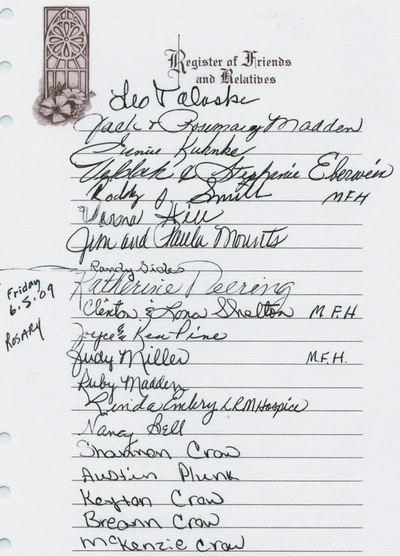 Register of Friends
and Relatives
Leo Taloske
Jack & Rosemary Madden
Eunie Kuhnke
& Stephanie Eberwein
Roddy J Smith M.F.H
Kill
Jim and Paula Mounts
Randy Sides
Katherine Deering
Friday
6.5.09
Rosary
Clinton & Lona Shelton M.F.H
Joyce & Ken Pine
Judy Miller M.F.H.
Ruby Madden
Linda Embry LRM Hospice
Nancy Bell
Shannon Crow
Austin Plunk
Keyton Crow
Breann Crow
McKenzie Crow